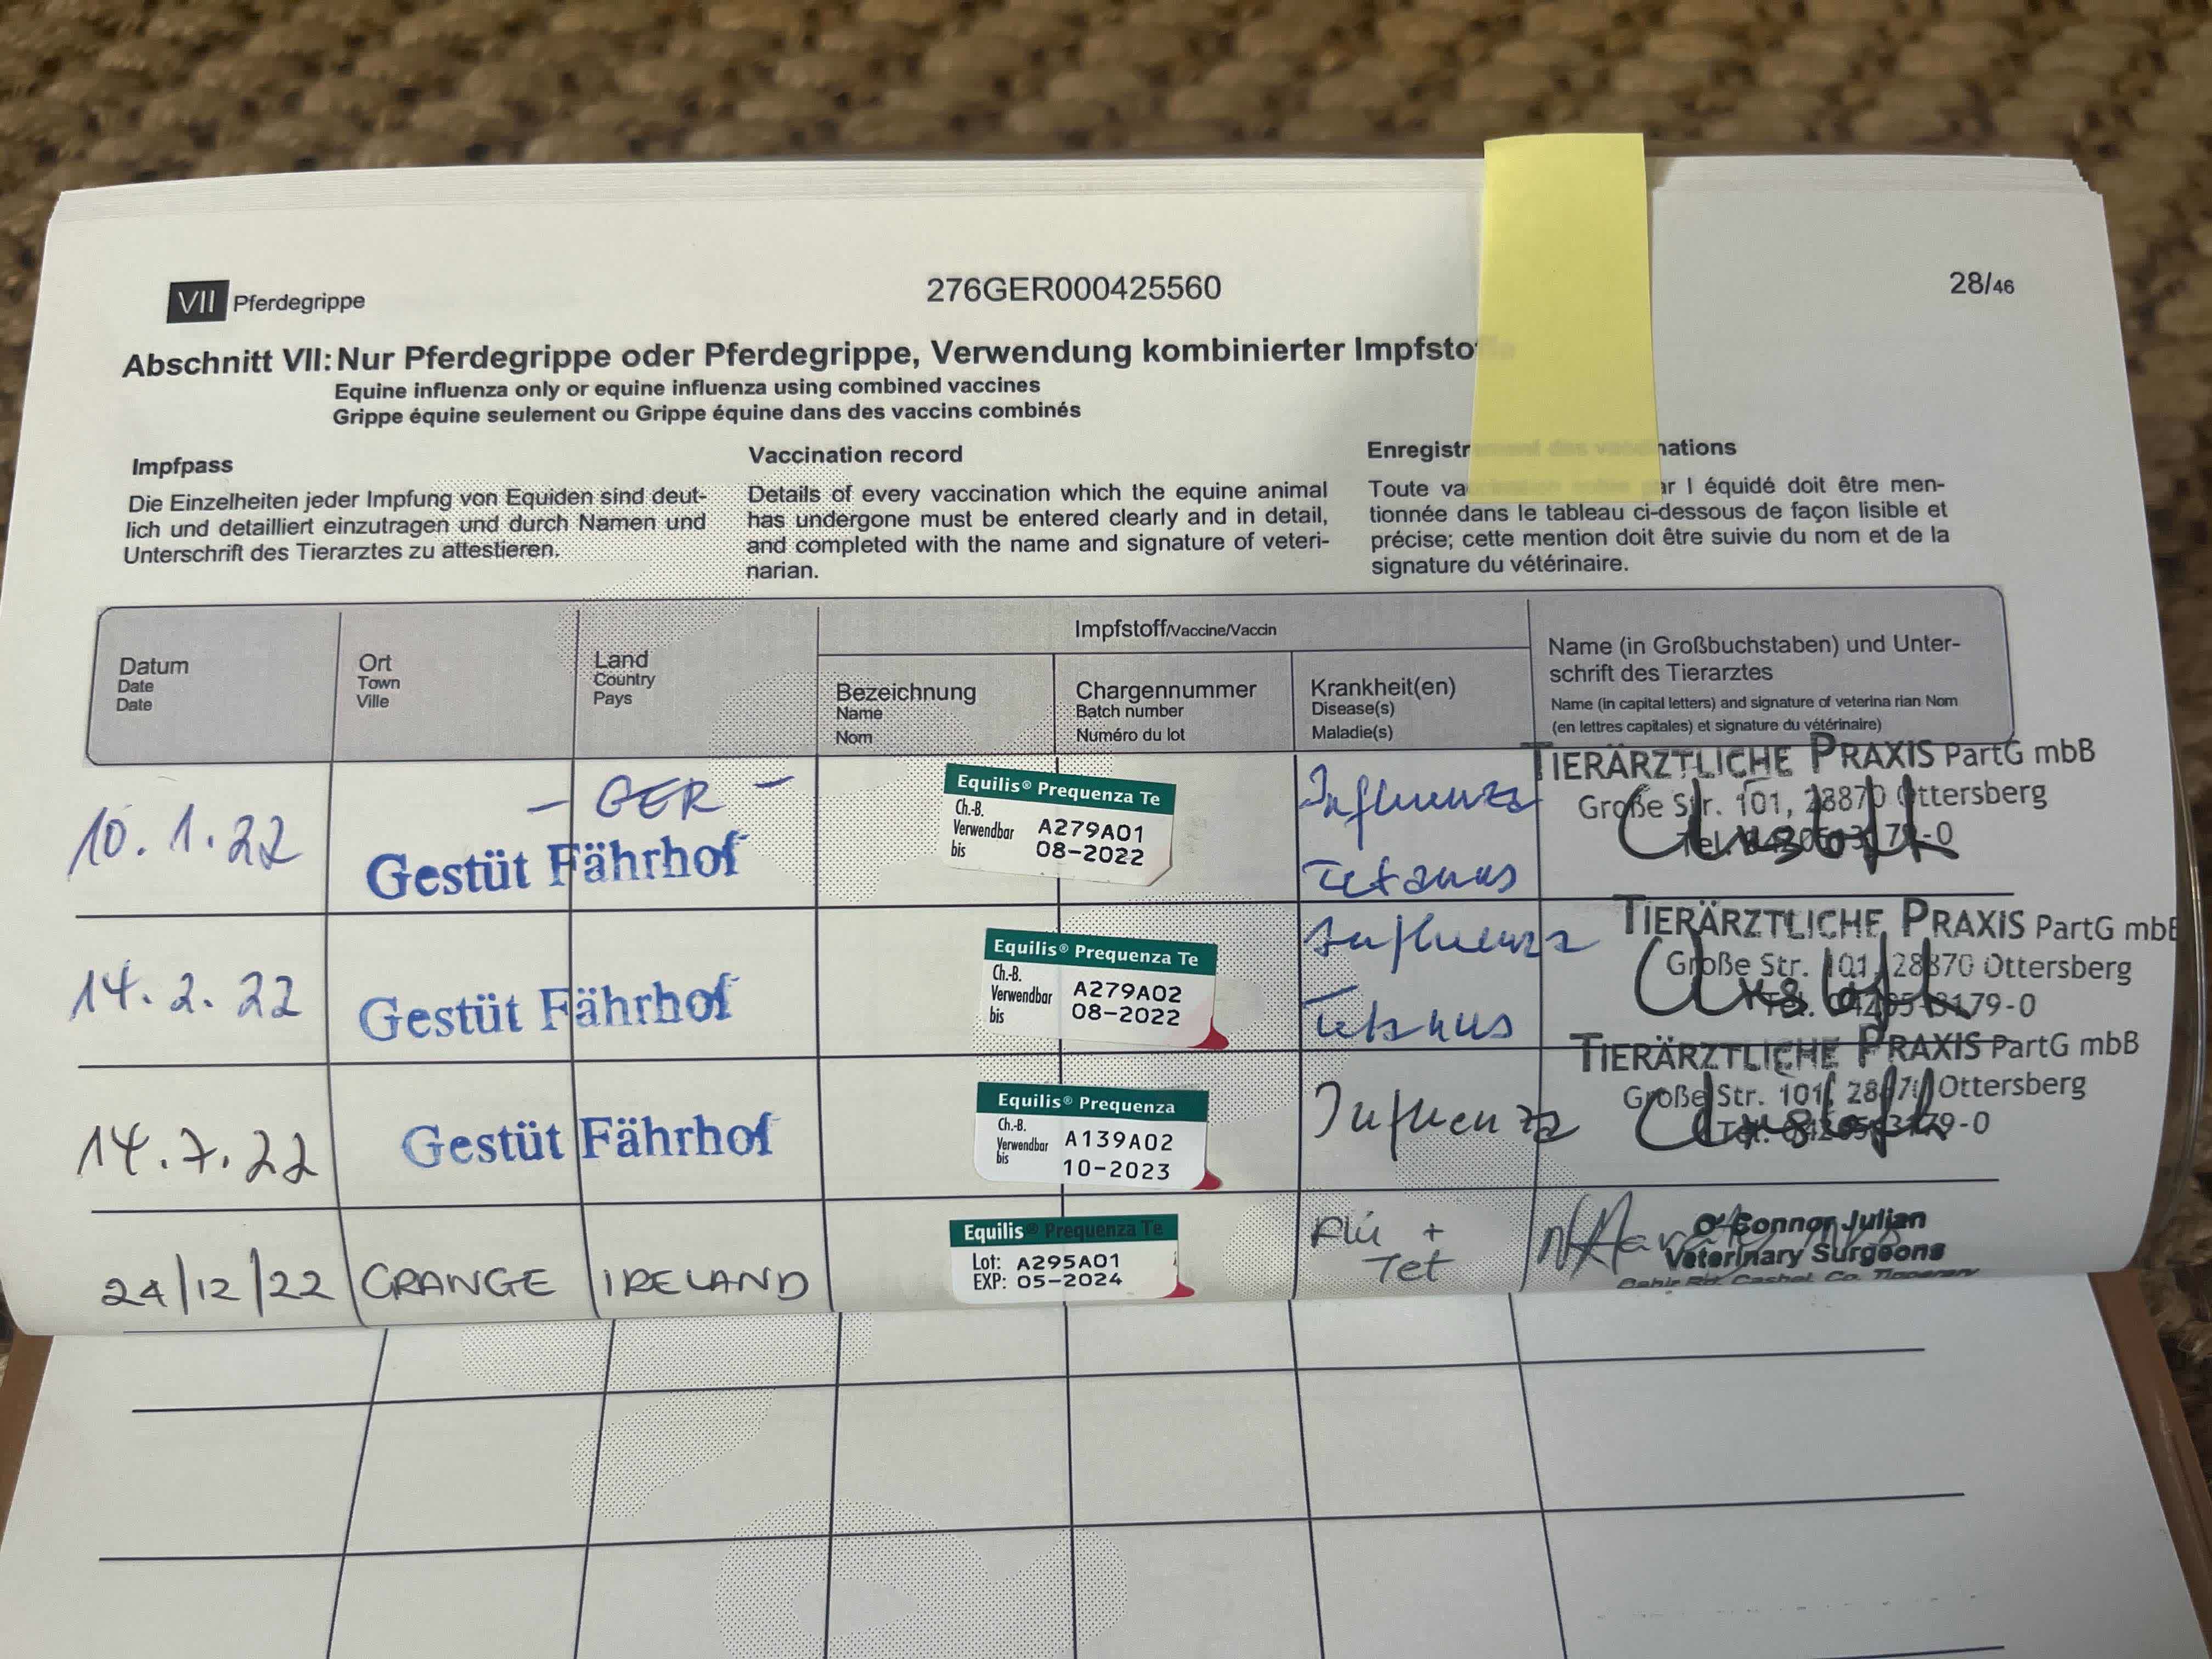 VII Pferdegrippe
276GER000425560
28/46
Abschnitt VII: Nur Pferdegrippe oder Pferdegrippe, Verwendung kombinierter Impfsto
Equine influenza only or equine influenza using combined vaccines
Grippe équine seulement ou Grippe équine dans des vaccins combinés
Impfpass
Die Einzelheiten jeder Impfung von Equiden sind deut-
lich und detailliert einzutragen und durch Namen und
Unterschrift des Tierarztes zu attestieren.
Vaccination record
Details of every vaccination which the equine animal
has undergone must be entered clearly and in detail,
and completed with the name and signature of veteri-
narian.
Enregistrement des vaccinations
Toute vaccination subie par l équidé doit être men-
tionnée dans le tableau ci-dessous de façon lisible et
précise; cette mention doit être suivie du nom et de la
signature du vétérinaire.
Datum
Date
Date
Ort
Town
Ville
Land
Country
Pays
Impfstoff/Vaccine/Vaccin
Bezeichnung
Name
Nom
Chargennummer
Batch number
Numéro du lot
Krankheit(en)
Disease(s)
Maladie(s)
Name (in Großbuchstaben) und Unter-
schrift des Tierarztes
Name (in capital letters) and signature of veterina rian Nom
(en lettres capitales) et signature du vétérinaire)
10.1.22
- GER -
Gestüt Fährhof
Equilis® Prequenza Te
Ch.-B.
Verwendbar A279A01
bis 08-2022
Influenza
Tetanus
TIERÄRZTLICHE PRAXIS PartG mbB
Große Str. 101, 28870 Ottersberg
14.2.22
Gestüt Fährhof
Equilis® Prequenza Te
Ch.-B.
Verwendbar A279A02
bis 08-2022
Influenza
Tetanus
TIERÄRZTLICHE PRAXIS PartG mbB
Große Str. 101, 28870 Ottersberg
14.7.22
Gestüt Fährhof
Equilis® Prequenza
Ch.-B.
Verwendbar A139A02
bis 10-2023
Influenza
TIERÄRZTLICHE PRAXIS PartG mbB
Große Str. 101, 28870 Ottersberg
24/12/22
GRANGE
IRELAND
Equilis® Prequenza Te
Lot: A295A01
EXP: 05-2024
Flu +
Tet
O'Connor Julian
Veterinary Surgeons
Cahir Rd, Cashel, Co. Tipperary